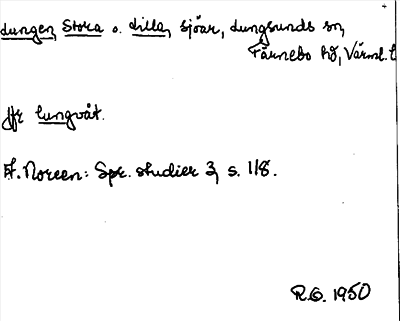 Lungen, Stora o. Lilla, sjöar, Lungsunds sn,
Färnebo hd, Värml. l
jfr lungvåt.
E. Noreen: Spr. studier 3, s. 118.
R.G. 1950